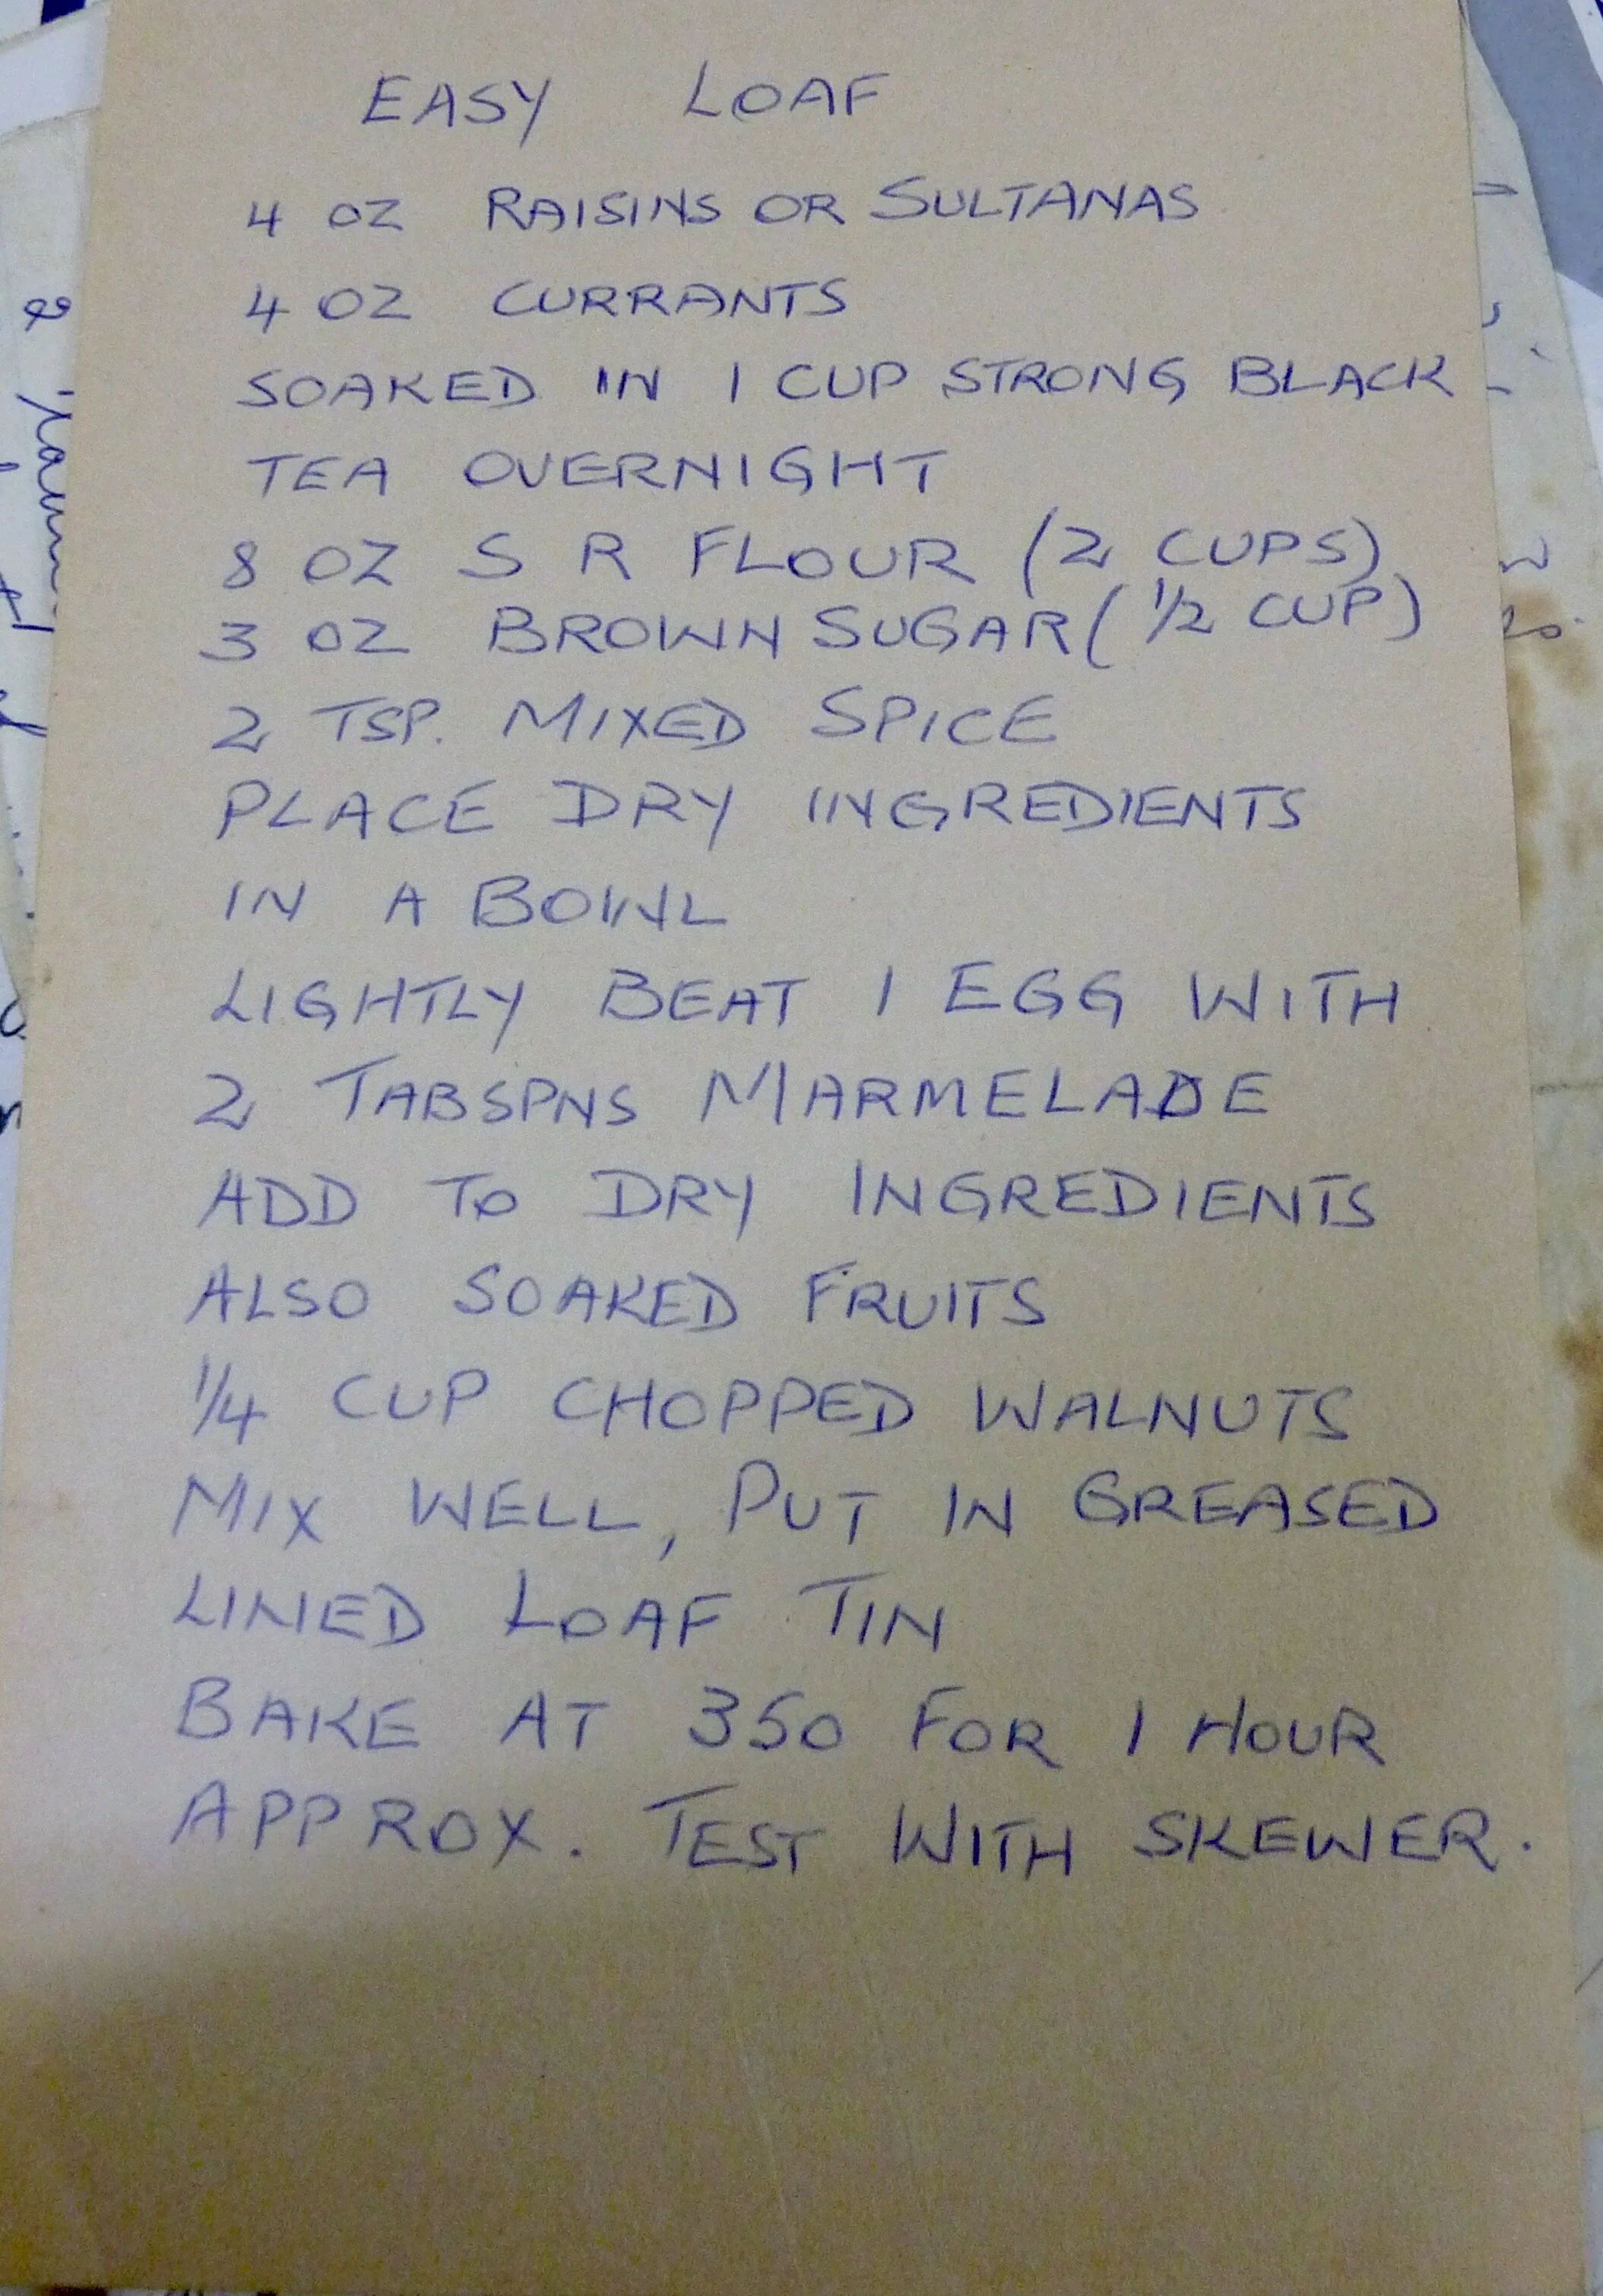 EASY LOAF
4 OZ RAISINS OR SULTANAS
4 OZ CURRANTS
SOAKED IN 1 CUP STRONG BLACK
TEA OVERNIGHT
8 OZ S R FLOUR (2 CUPS)
3 OZ BROWN SUGAR (1/2 CUP)
2 TSP. MIXED SPICE
PLACE DRY INGREDIENTS
IN A BOWL
LIGHTLY BEAT 1 EGG WITH
2 TABSPNS MARMELADE
ADD TO DRY INGREDIENTS
ALSO SOAKED FRUITS
1/4 CUP CHOPPED WALNUTS
MIX WELL, PUT IN GREASED
LINED LOAF TIN
BAKE AT 350 FOR 1 HOUR
APPROX. TEST WITH SKEWER.